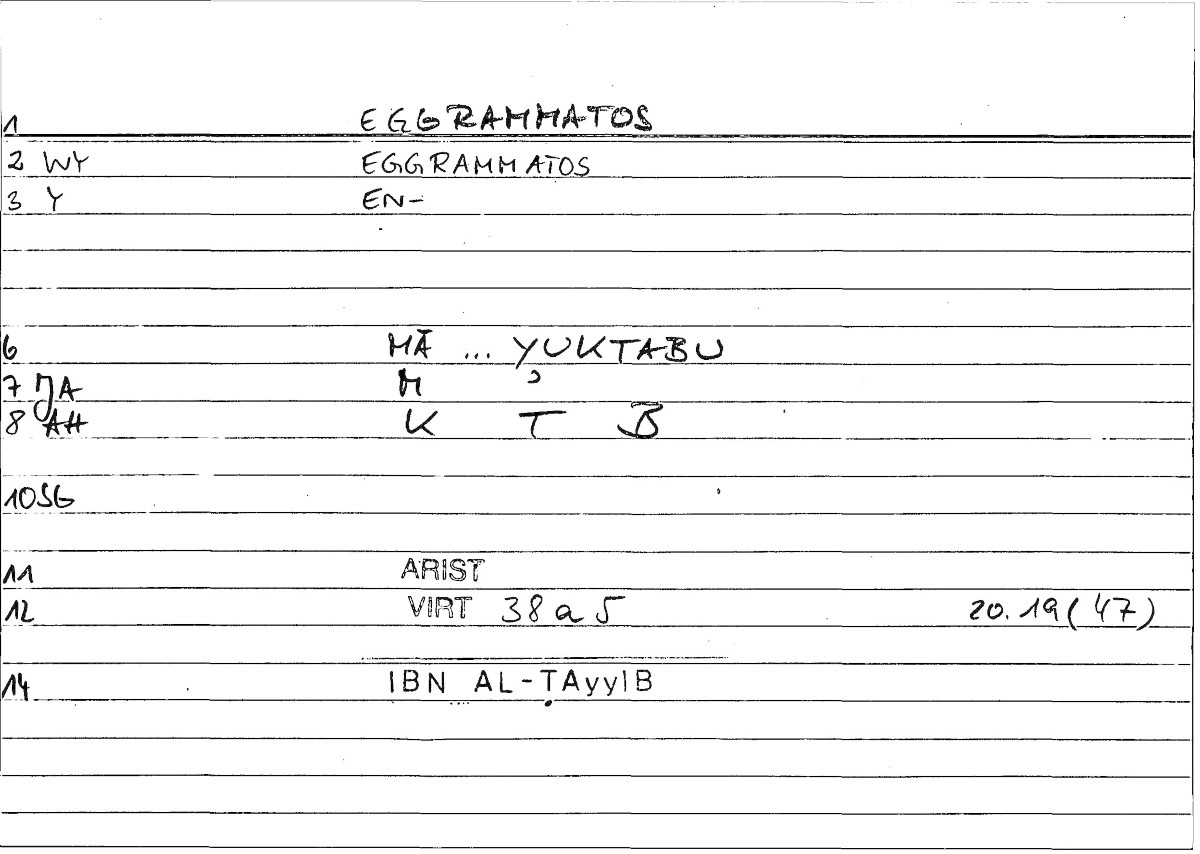 1 EGGRAMMATOS
2 WY EGGRAMMATOS
3 Y EN-
6 MĀ ... YUKTABU
7 JA M ʾ
8 AH K T B
10 SG
11 ARIST
12 VIRT 38a5 20.19(47)
14 IBN AL-ṬAyyIB